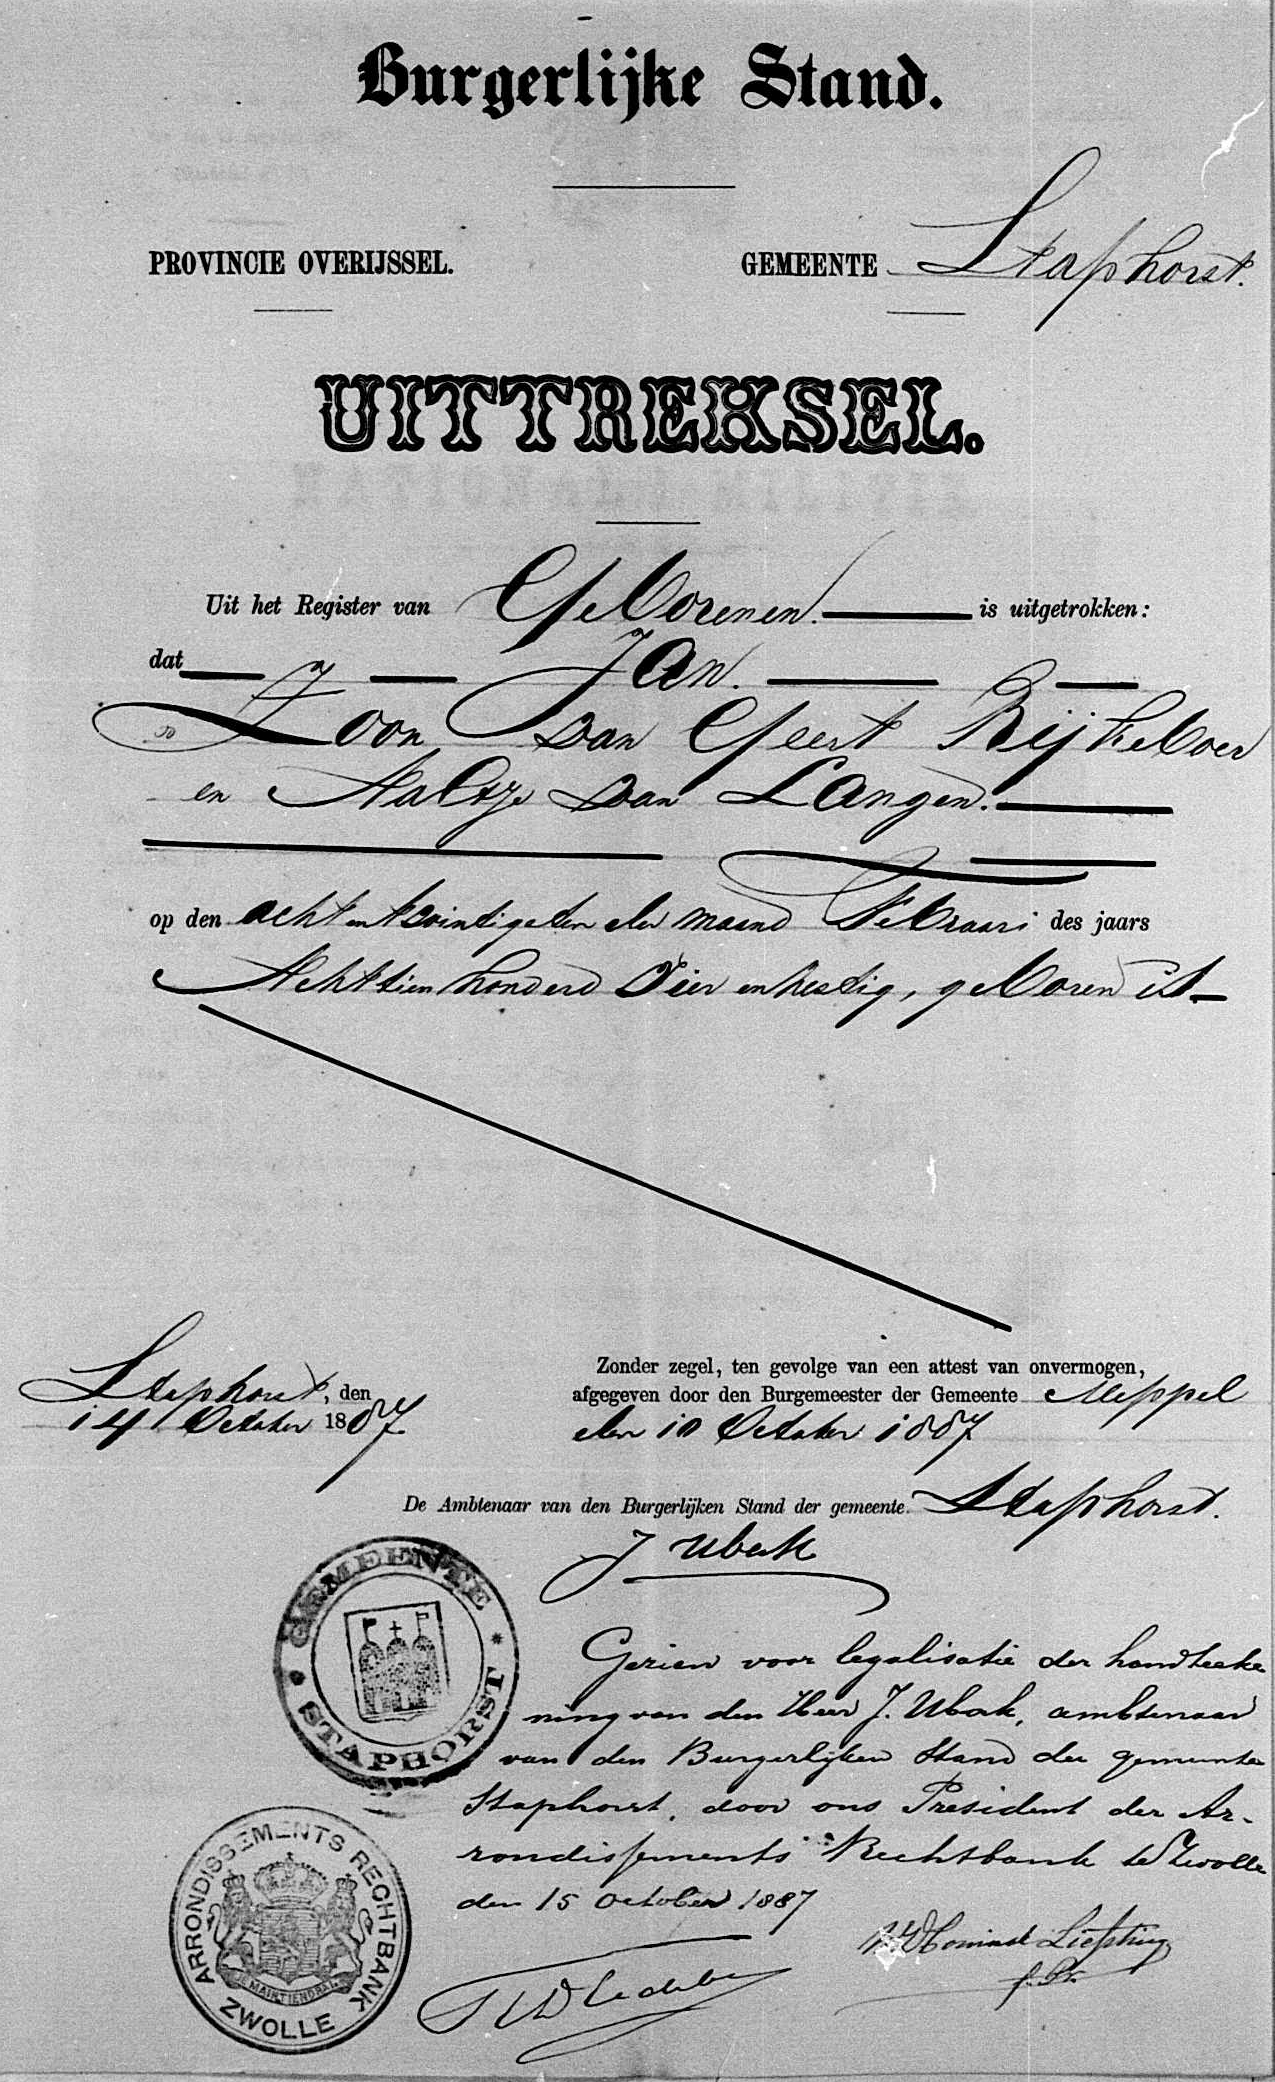 Burgerlijke Stand.
PROVINCIE OVERIJSSEL.
GEMEENTE Staphorst.
UITTREKSEL.
Uit het Register van Geborenen. is uitgetrokken:
dat Jan.
Zoon van Geert Rijkeboer
en Aaltje van Langen.
op den acht en twintigsten der maand Februari des jaars
Achttien honderd vier en zestig, geboren is
Staphorst, den
14 October 1887.
Zonder zegel, ten gevolge van een attest van onvermogen,
afgegeven door den Burgemeester der Gemeente Meppel
den 10 October 1887
De Ambtenaar van den Burgerlijken Stand der gemeente Staphorst.
J Ubak
GEMEENTE STAPHORST
Gezien voor legalisatie der handteeke
ning van den Heer J. Ubak, ambtenaar
van den Burgerlijken Stand der gemeente
Staphorst, door ons President der Ar-
rondissements Rechtbank te Zwolle
den 15 October 1887
ARRONDISSEMENTS RECHTBANK ZWOLLE